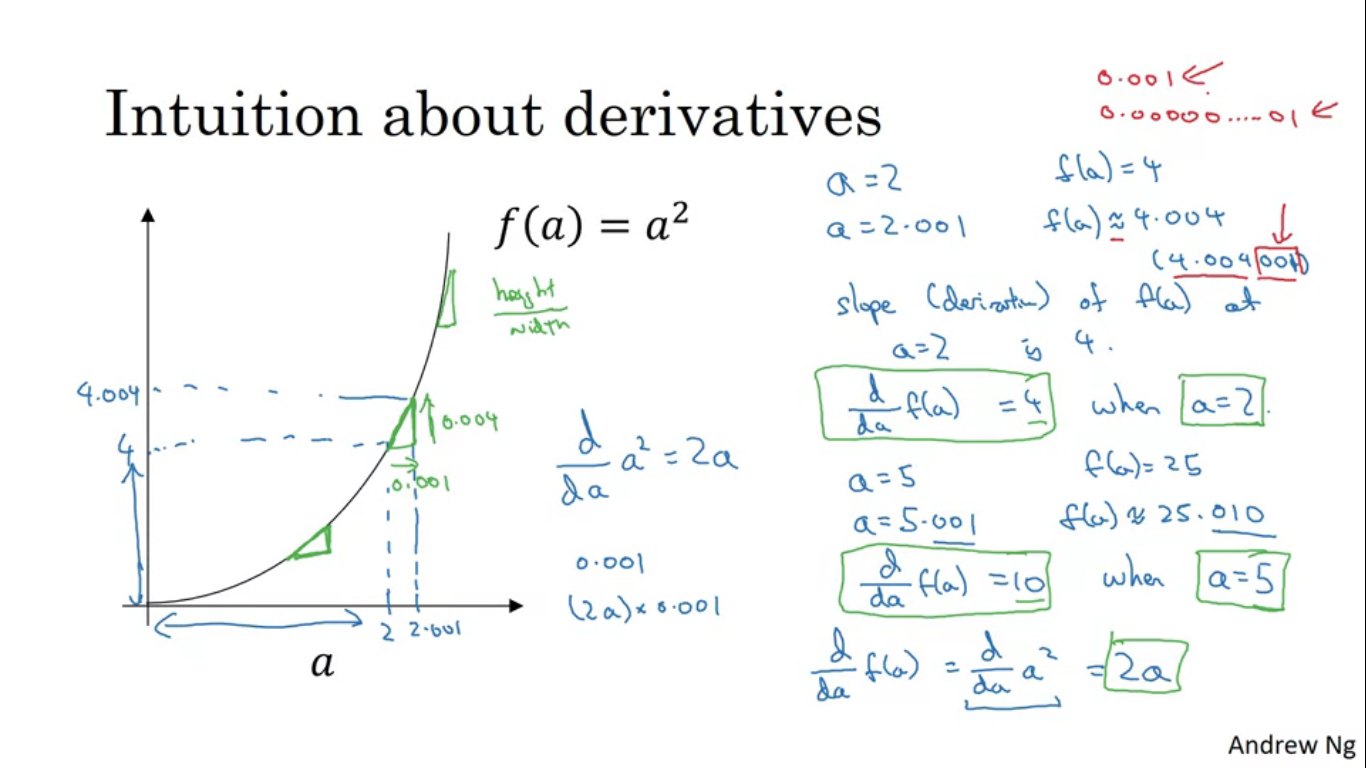 Intuition about derivatives
0.001
0.00000.....01
f(a) = a²
height
width
4.004
4
0.004
0.001
2
2.001
a
d/da a² = 2a
0.001
(2a) × 0.001
a = 2
f(a) = 4
a = 2.001
f(a) ≈ 4.004
(4.004001)
slope (derivative) of f(a) at
a=2 is 4.
d/da f(a) = 4 when a=2.
a = 5
f(a) = 25
a = 5.001
f(a) ≈ 25.010
d/da f(a) = 10 when a=5
d/da f(a) = d/da a² = 2a
Andrew Ng